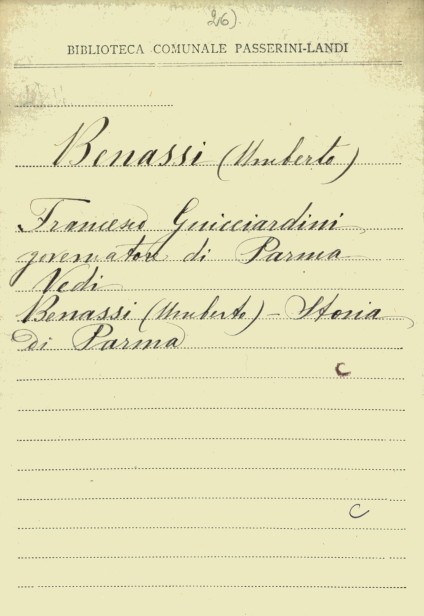 26).
BIBLIOTECA COMUNALE PASSERINI-LANDI
Benassi (Umberto)
Francesco Guicciardini
governatore di Parma
Vedi
Benassi (Umberto) - Storia
di Parma
C
C